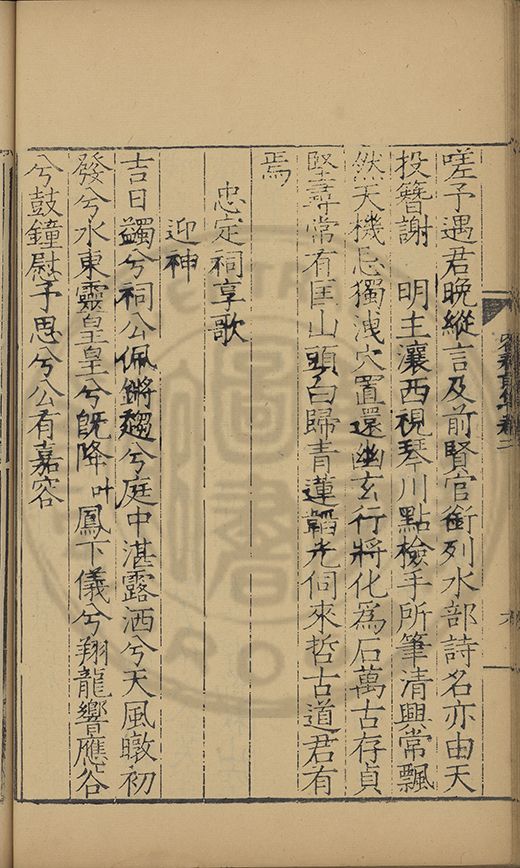 嗟予遇君晚縱言及前賢官銜列水部詩名亦由天
投簪謝　明主瀼西視琴川點檢手所筆清興常飄
然天機忌獨洩穴置還幽玄行將化爲石萬古存貞
堅尋常有匡山頭白歸青蓮韜光伺來哲古道君有
焉
忠定祠享歌
迎神
吉日蠲兮祠公佩鏘趨兮庭中湛露洒兮天風暾初
發兮水東靈皇皇兮旣降叶鳳下儀兮翔龍響應谷
兮鼓鐘慰予思兮公有嘉容